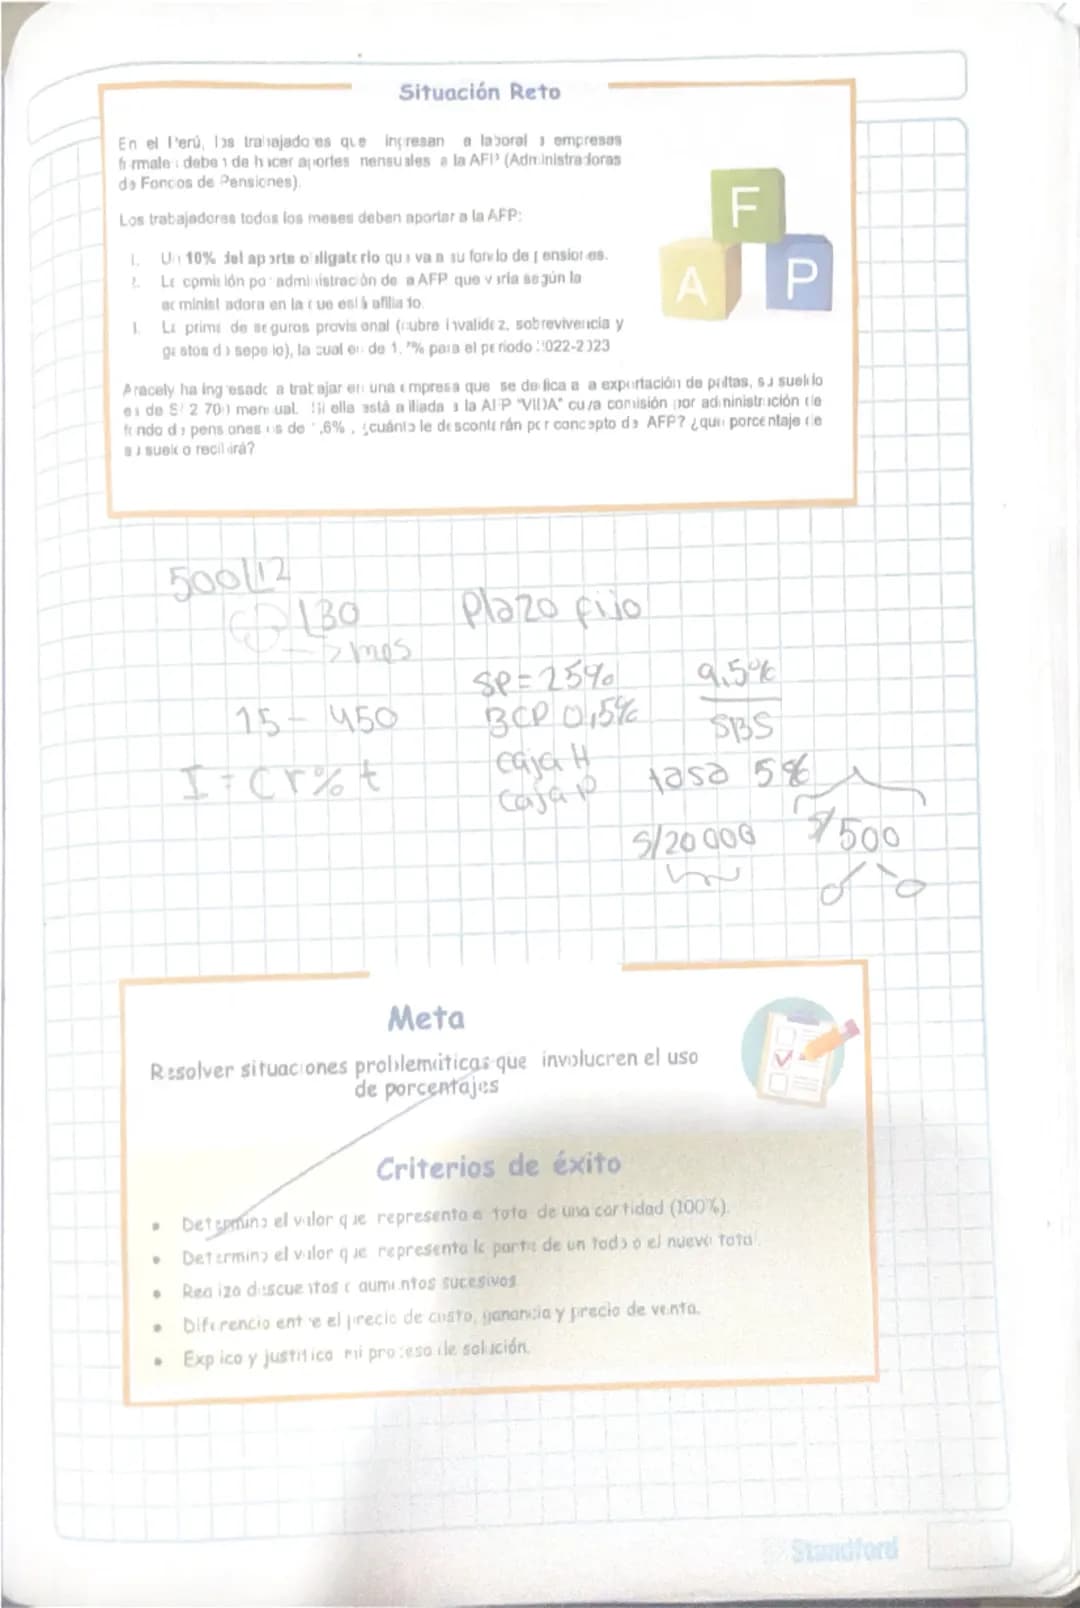 Situación Reto
En el Perú, los trabajadores que ingresan a laboral a empresas
formales deben de hacer aportes mensuales a la AFP (Administradoras
de Fondos de Pensiones).
Los trabajadores todos los meses deben aportar a la AFP:
Un 10% del aporte obligatorio que va a su fondo de pensiones.
La comisión por administración de la AFP que varía según la
administradora en la que está afiliado.
La prima de seguros provisional (cubre invalidez, sobrevivencia y
gastos de sepelio), la cual es de 1, 7% para el periodo 2022-2023
Aracely ha ingresado a trabajar en una empresa que se dedica a la exportación de paltas, su sueldo
es de S/ 2 700 mensual. Si ella está afiliada a la AFP "VIDA" cuya comisión por administración de
fondo de pensiones es de 1,6% , ¿cuánto le descontarán por concepto de AFP? ¿qué porcentaje de
su sueldo recibirá?
F
A P
500 12
30
mes
15 - 450
I = C r % t
Plazo fijo
SP = 25%
BCP 0,5%
Caja H
Caja P
9,5%
SBS
tasa 5%
S/20 000
S/500
Meta
Resolver situaciones problemáticas que involucren el uso
de porcentajes
Criterios de éxito
• Determino el valor que representa el total de una cantidad (100%).
• Determino el valor que representa la parte de un todo o el nuevo total.
• Realizo descuentos o aumentos sucesivos
• Diferencio entre el precio de costo, ganancia y precio de venta.
• Explico y justifico mi proceso de solución.
Standford